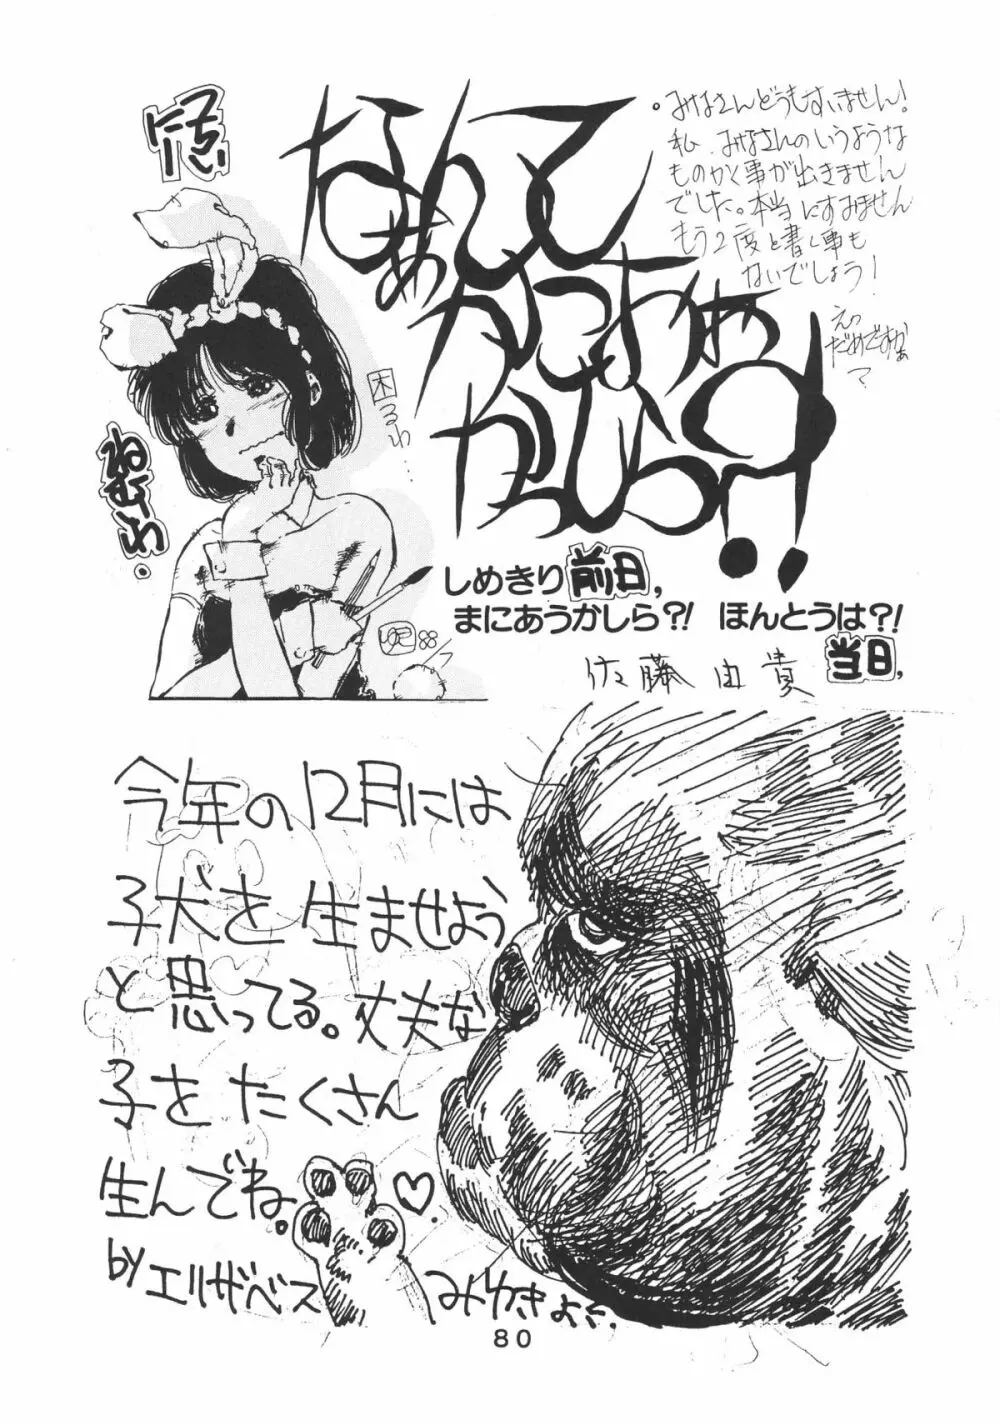 なぁんて
かこおゎぁ
からひら?!
。みなさんどうもすいません!
私、みなさんのいうような
ものかく事が出きません
でした。本当にすみません
もう2度と書く事も
ないでしょう!
えっ
だめですかぁ
?
困るわ
ねむいわ.
しめきり前日,
まにあうかしら?! ほんとうは?!
当日,
佐藤由貴
今年の12月には
子犬を生ませよう
と思ってる。丈夫な
子をたくさん
生んでね。♡.
by エルザベス
みゆきょ
80